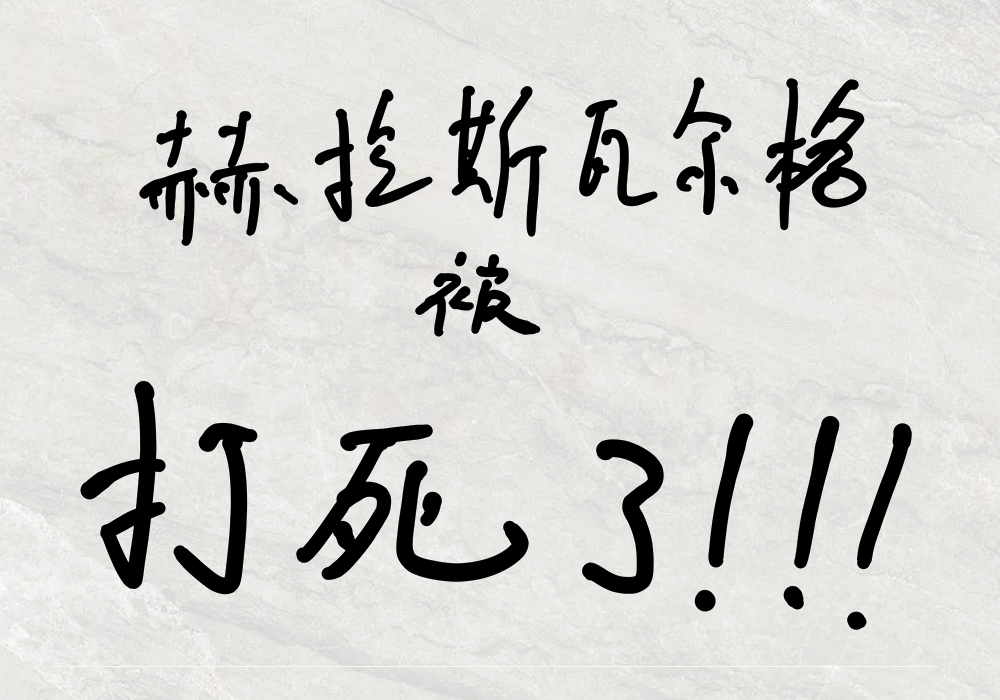 赫拉斯瓦尔格
被
打死了!!!